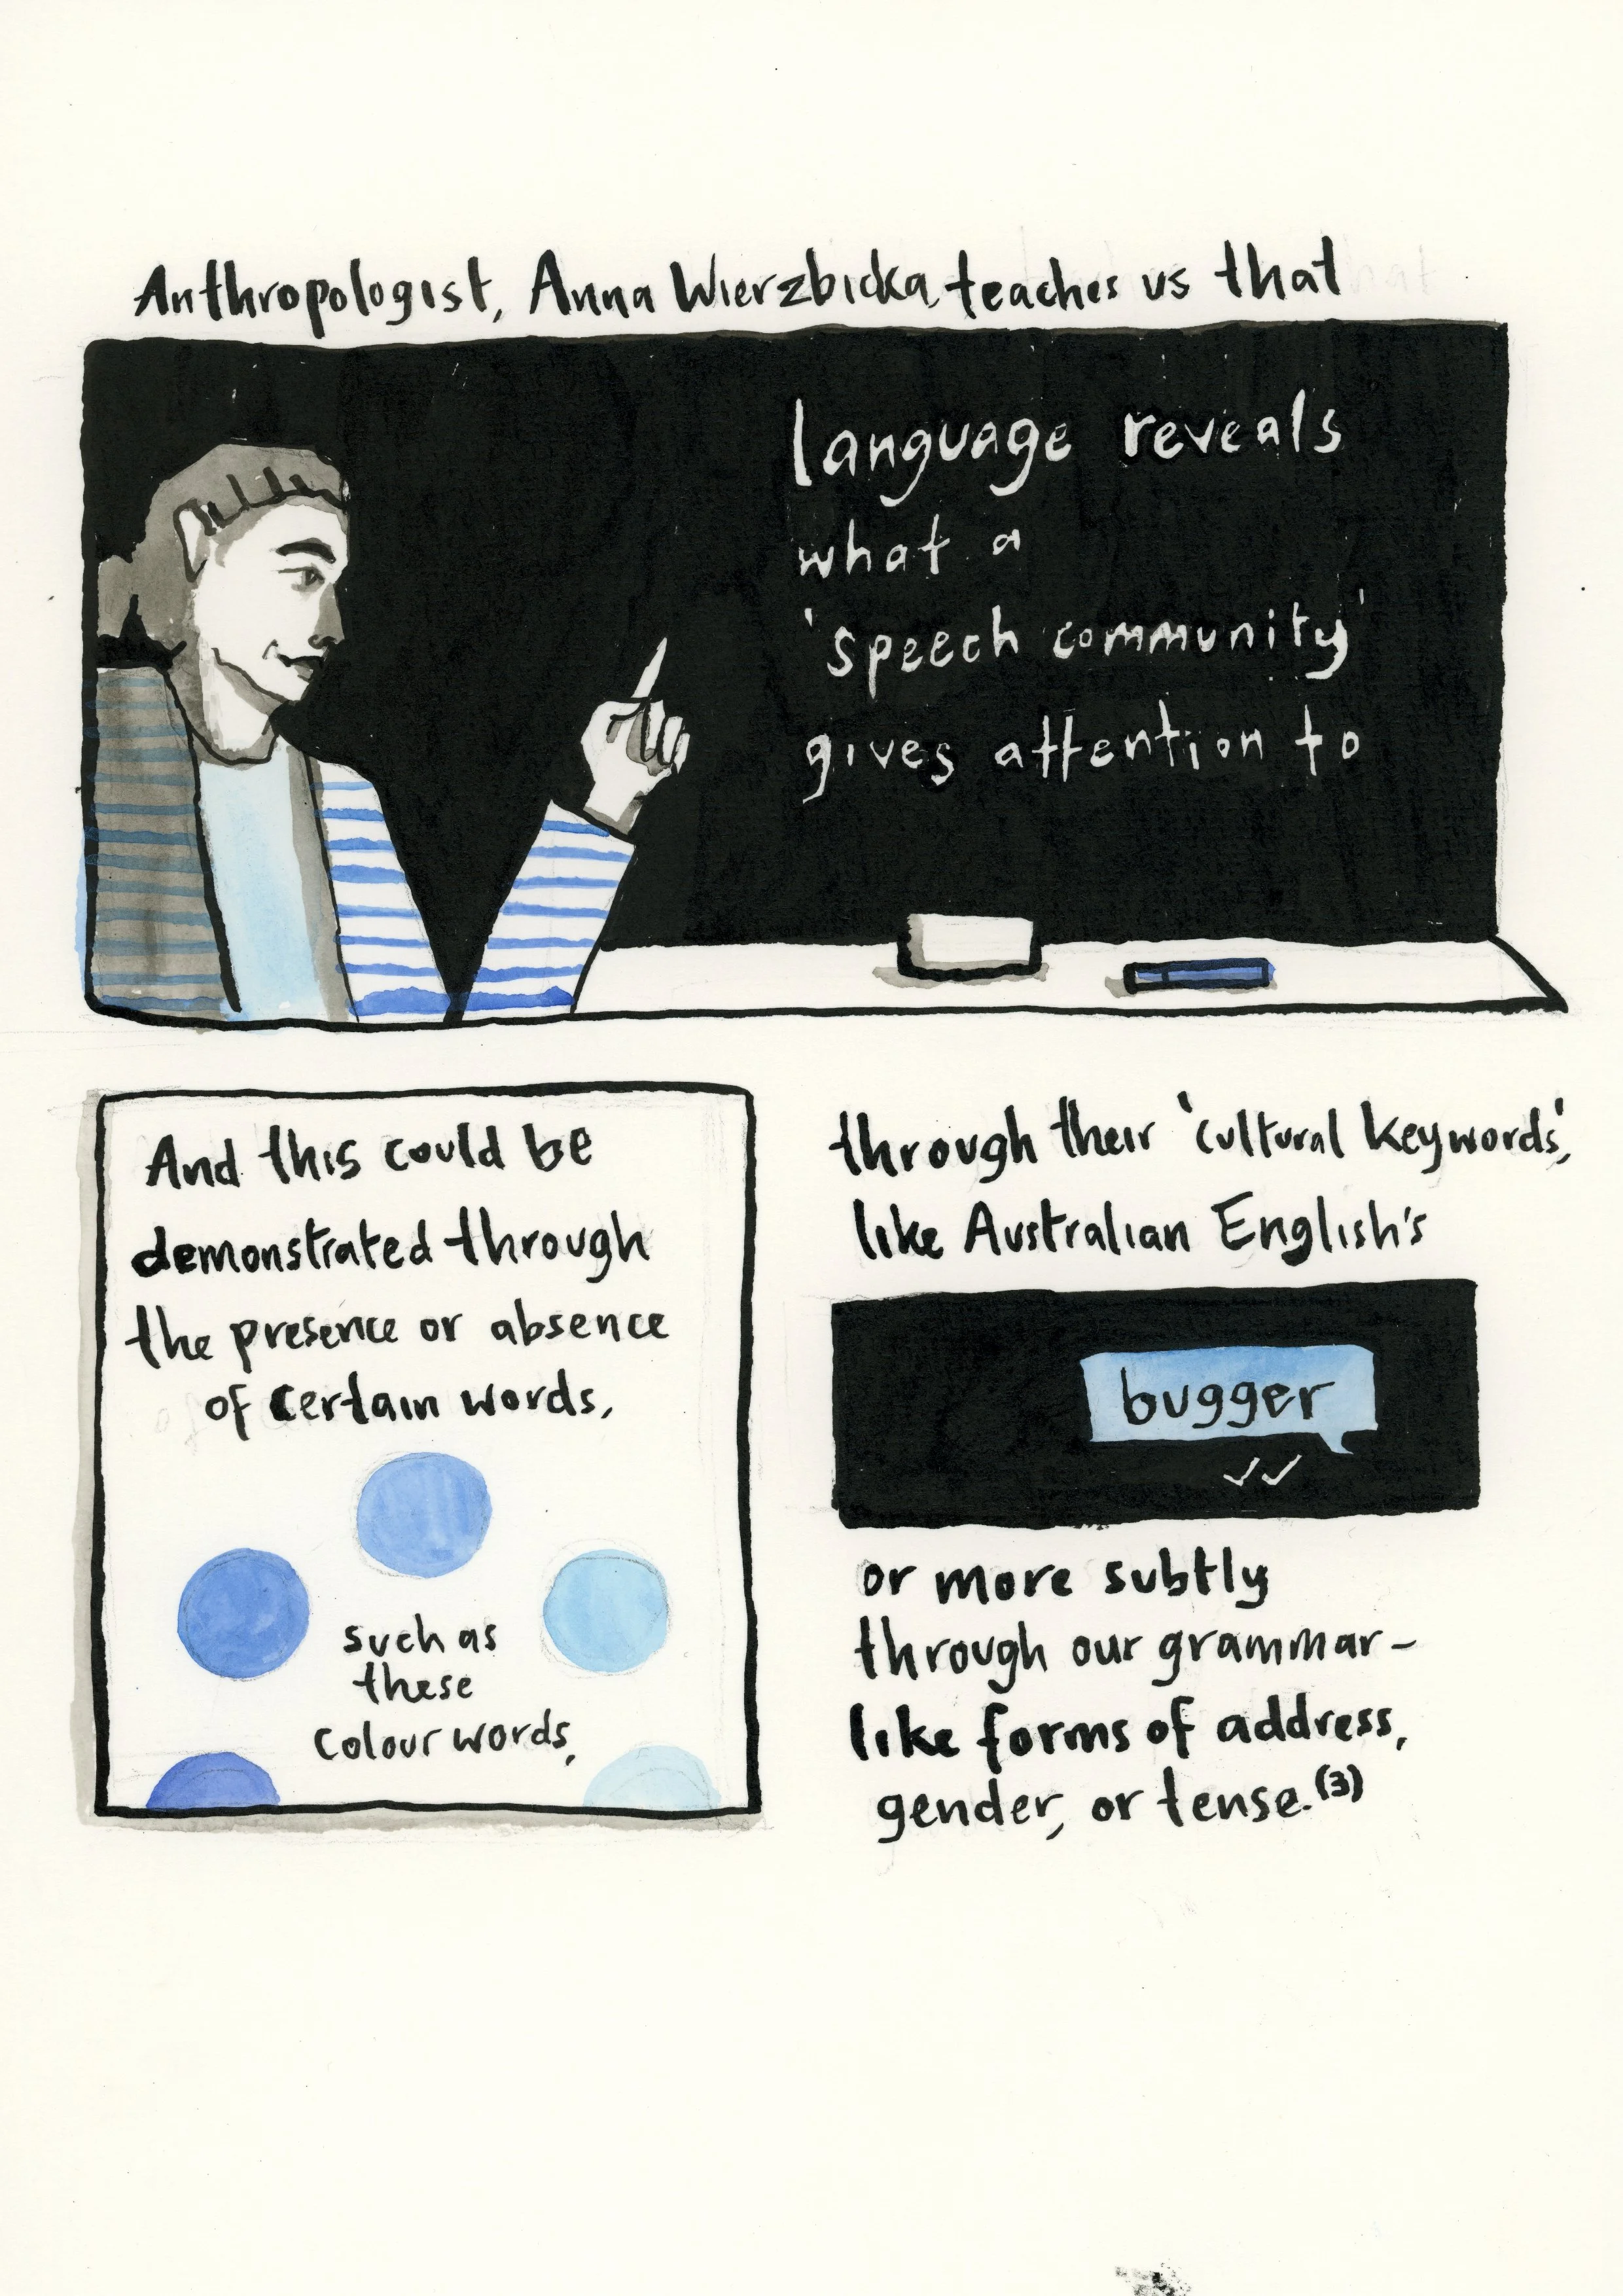 Anthropologist, Anna Wierzbicka, teaches us that
language reveals
what a
'speech community'
gives attention to
And this could be
demonstrated through
the presence or absence
of certain words,
such as
these
colour words,
through their 'cultural keywords',
like Australian English's
bugger
or more subtly
through our grammar–
like forms of address,
gender, or tense.(3)